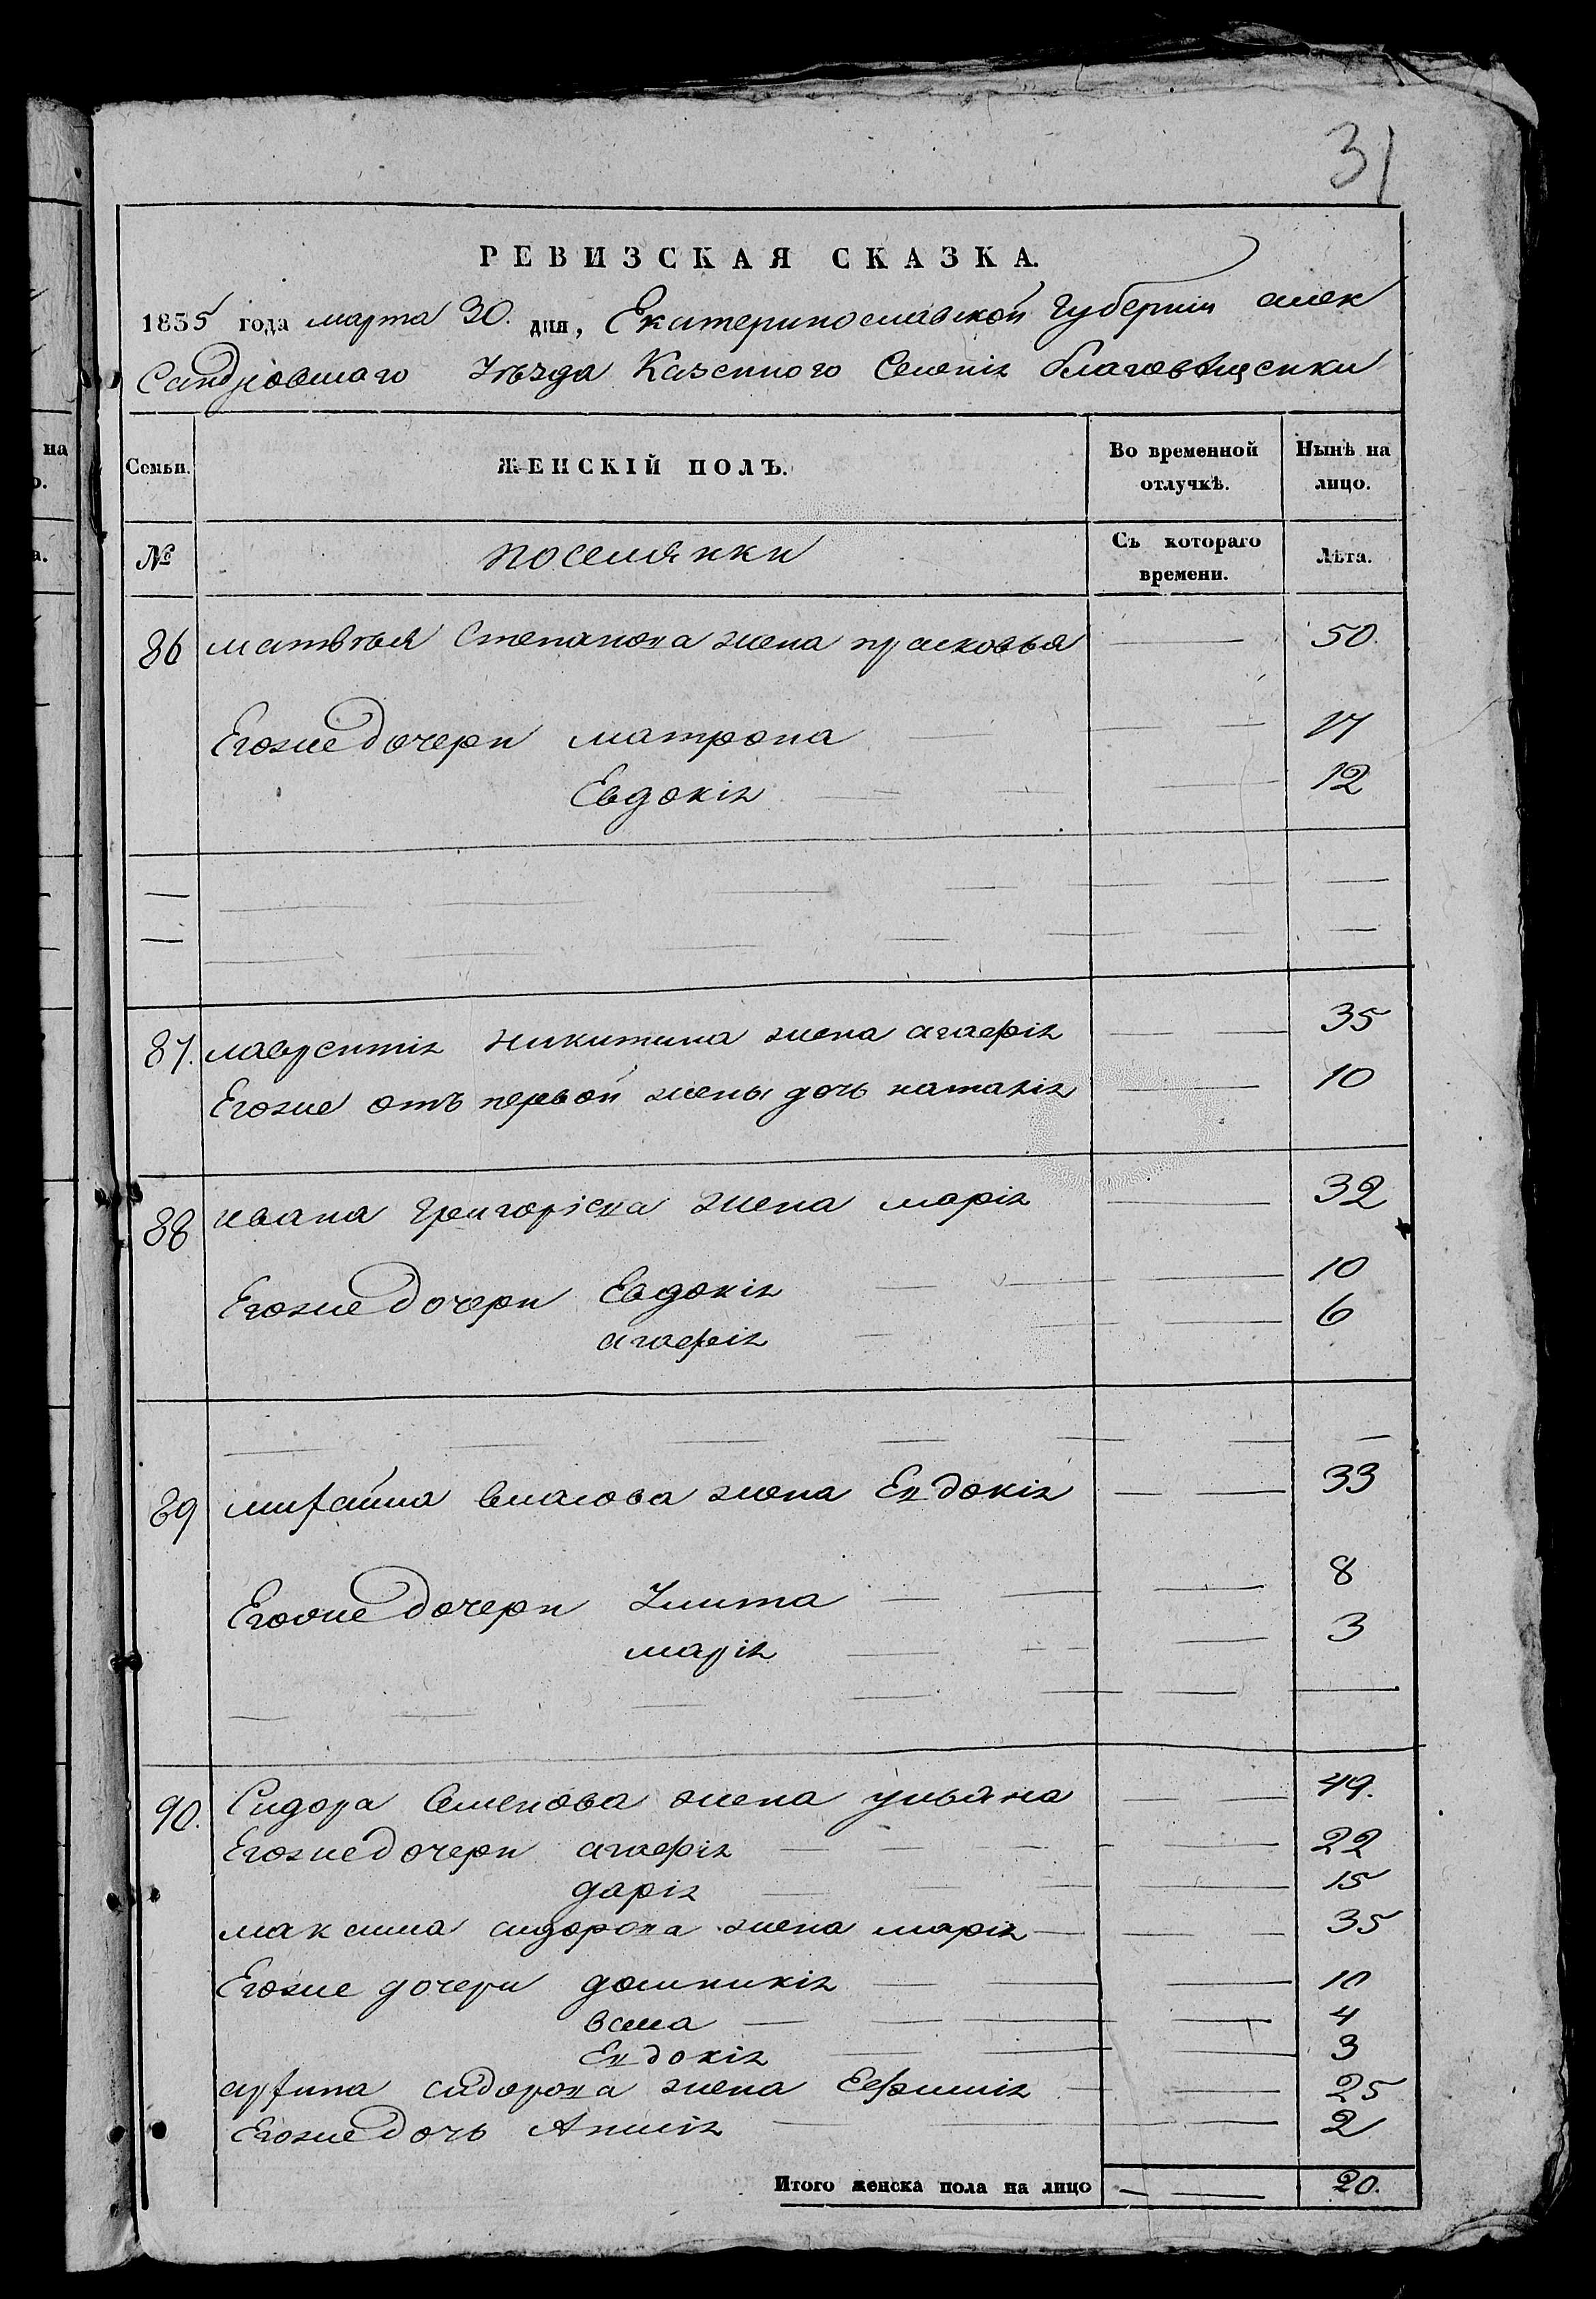 31
РЕВИЗСКАЯ СКАЗКА.
1835 года марта 30. дня, Екатеринославской Губернии алек
сандровскаго Уѣзда Казенного Селенія благовѣщенки
на
Семьи.
ЖЕНСКІЙ ПОЛЪ.
Во временной отлучкѣ.
Нынѣ на лицо.
о.
№
поселянки
Съ котораго времени.
Лѣта.
а.
86 матвѣя Степанова жена прасковья — 50.
Егожже дочери матрона — 17
Евдокія — 12
87. лаврентія никитина жена агафія — 35
Егоже отъ первой жены дочь наталія — 10
88 ивана григоріева жена марія — 32
Егоже дочери Евдокія — 10
агафія — 6
89 михайла власова жена Евдокія — 33
Егоже дочери Улита — 8
марія — 3
90. Сидора Семенова жена ульяна — 49.
Егоже дочери агафія — 22
дарія — 15
максима сидорова жена марія — 35
Егоже дочери домникія — 10
васса — 4
Евдокія — 3
архипа сидорова жена Ефимія — 25
Егоже дочь — 2
Итого женска пола на лицо — 20.